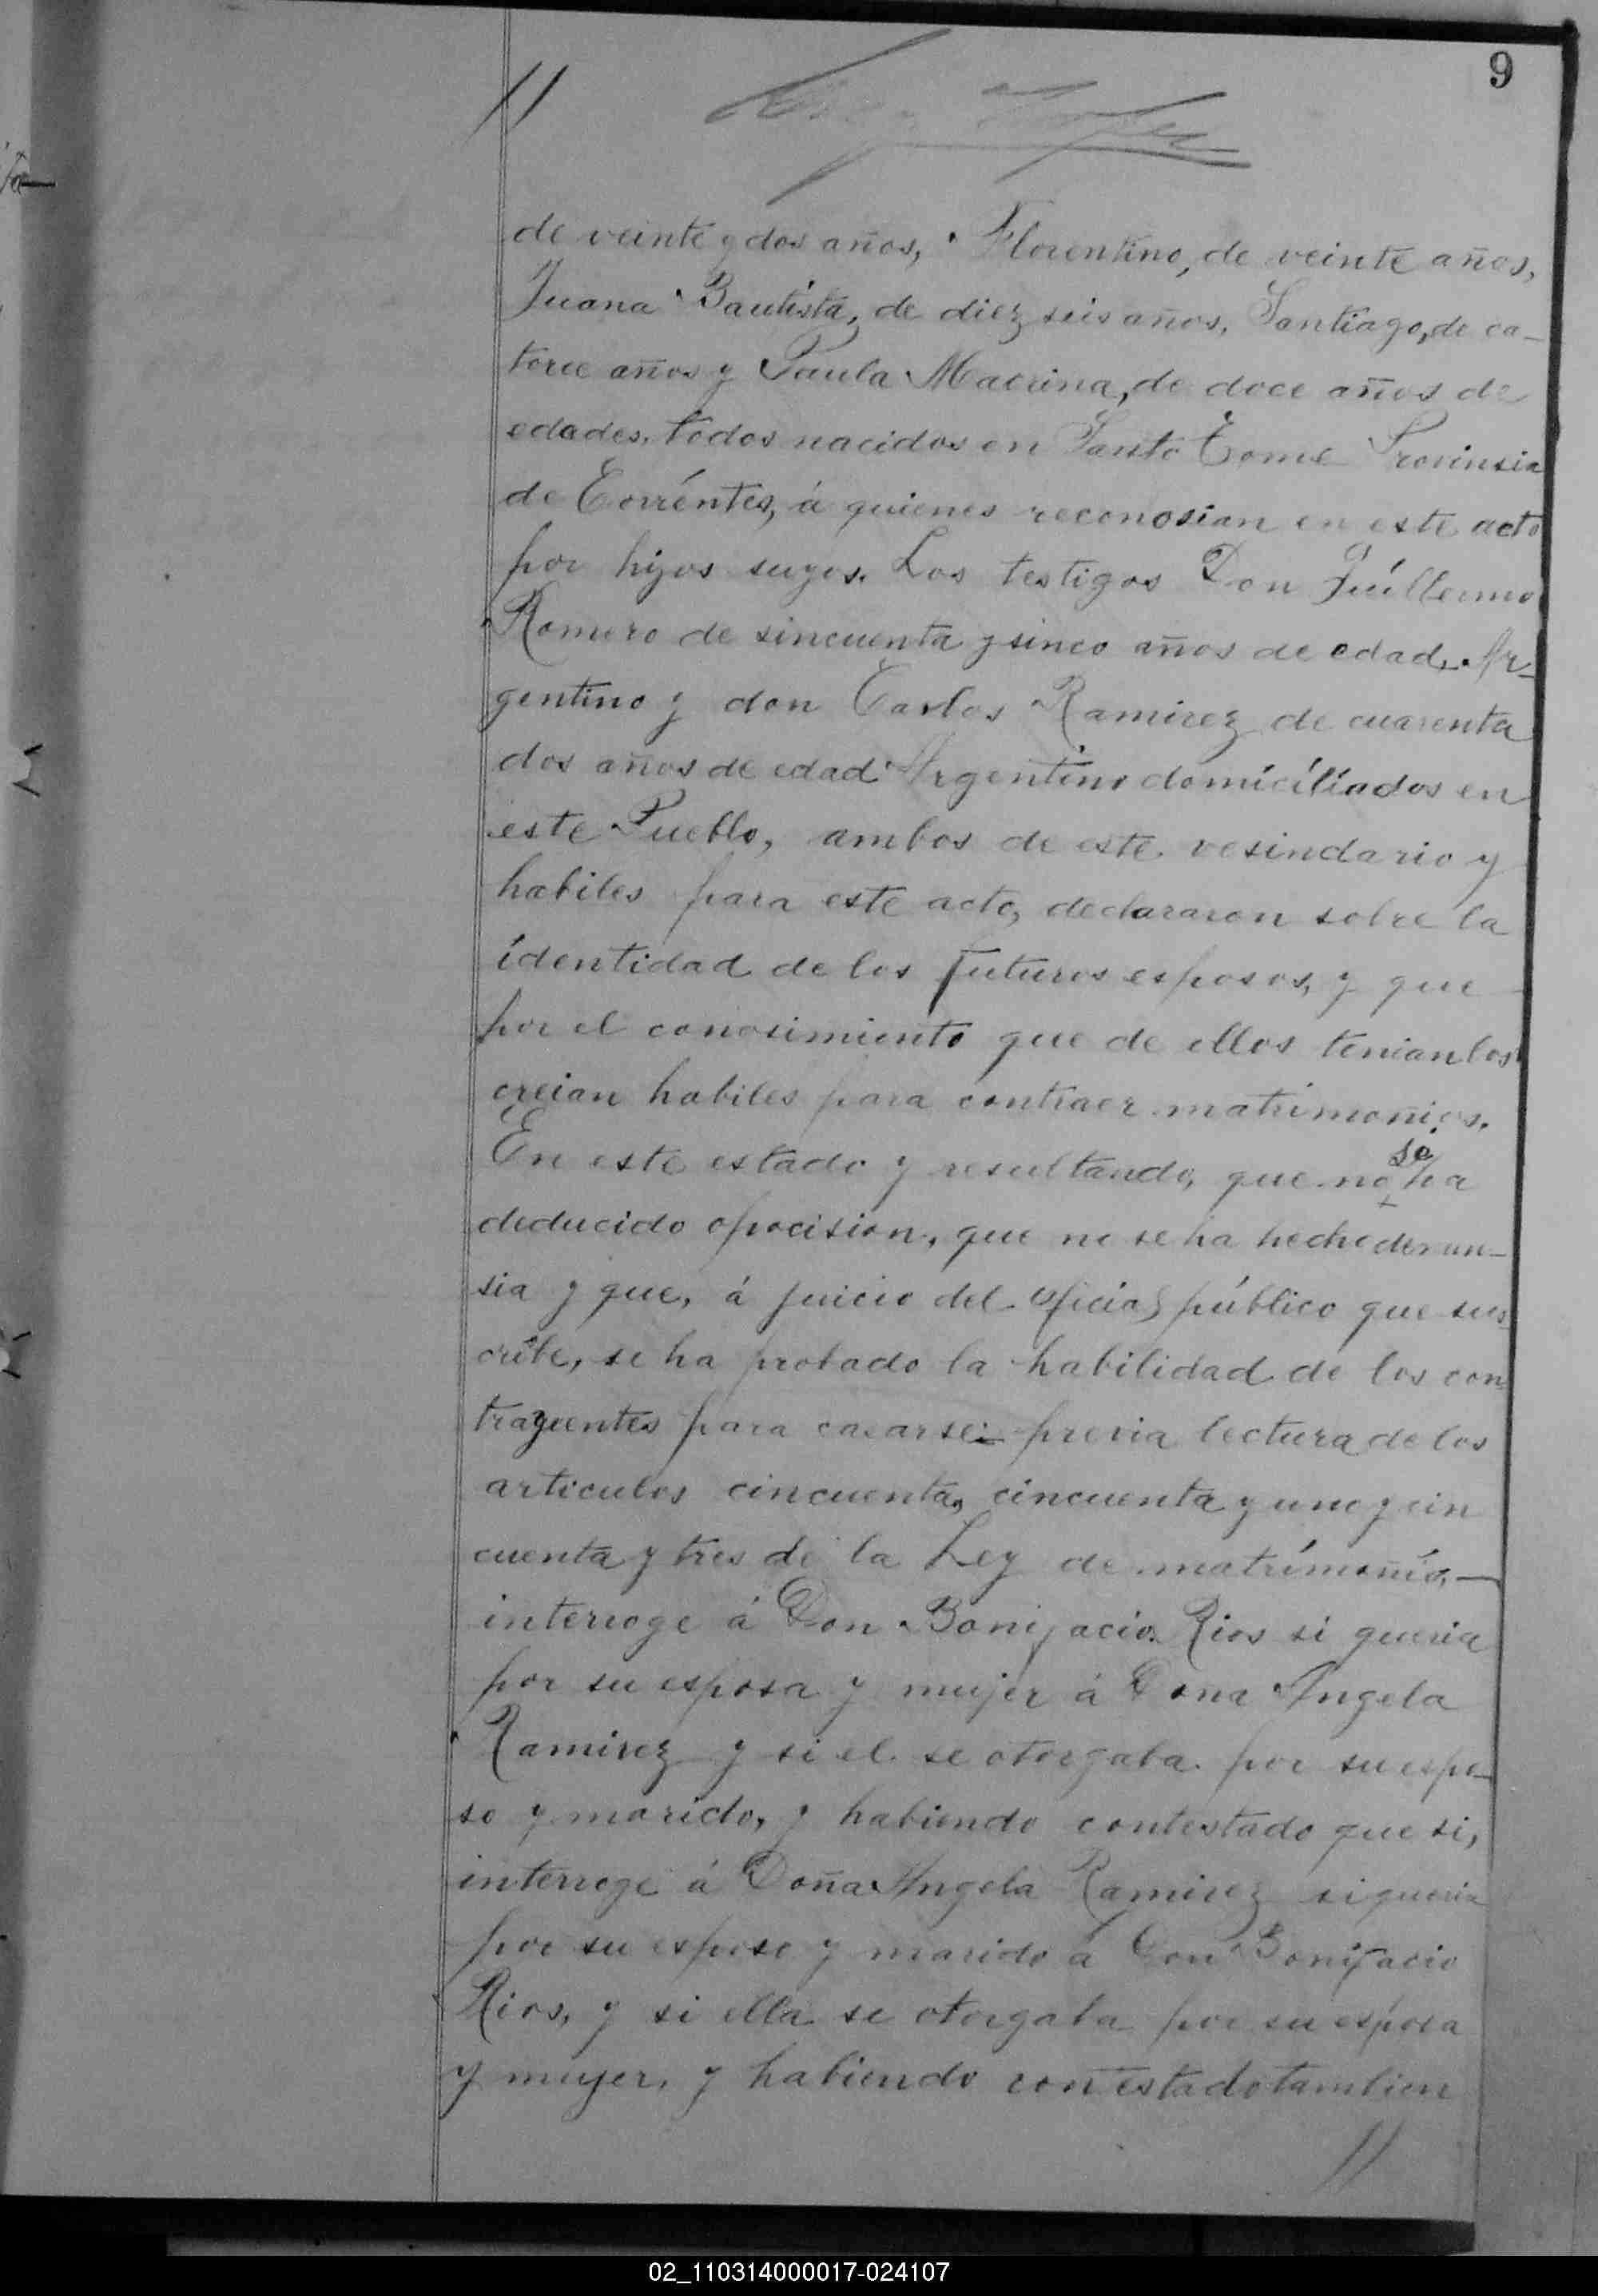 9
//
de veinte y dos años, Florentino, de veinte años,
Juana Bautista, de diez seis años, Santiago, de ca-
torce años y Paula Macrina, de doce años de
edades, todos nacidos en Santo Tome Provinsia
de Corréntes, á quienes reconosian en este acto
por hijos suyos. Los testigos Don Guíllermo
Romero de sincuenta y sinco años de edad, Ar-
gentino y don Carlos Ramirez de cuarenta
dos años de edad Argentino domicíliados en
este Pueblo, ambos de este vesindario y
habiles para este acto, declararon sobre la
identidad de los futuros esposos, y que
por el conosimiento que de ellos tenian los
creian habiles para contraer matrimonios.
En este estado y resultando, que no se ha
deducido opocision, que no se ha hecho denun-
sia y que, á juicio del oficial público que sus
críbe, se ha probado la habilidad de los con
trayentes para casarse; previa lectura de los
articulos cincuenta, cincuenta y uno y cin
cuenta y tres de la Ley de matrímonío,—
interroge á Don Bonifacio Rios si queria
por su esposa y mujer á Doña Angela
Ramirez y si el se otorgaba por su espo-
so y marido, y habiendo contestado que si,
interroge á Doña Angela Ramirez si queria
por su esposo y marido á Don Bonifacio
Rios, y si ella se otorgaba por su esposa
y mujer, y habiendo contestado tambien
//
02_110314000017-024107